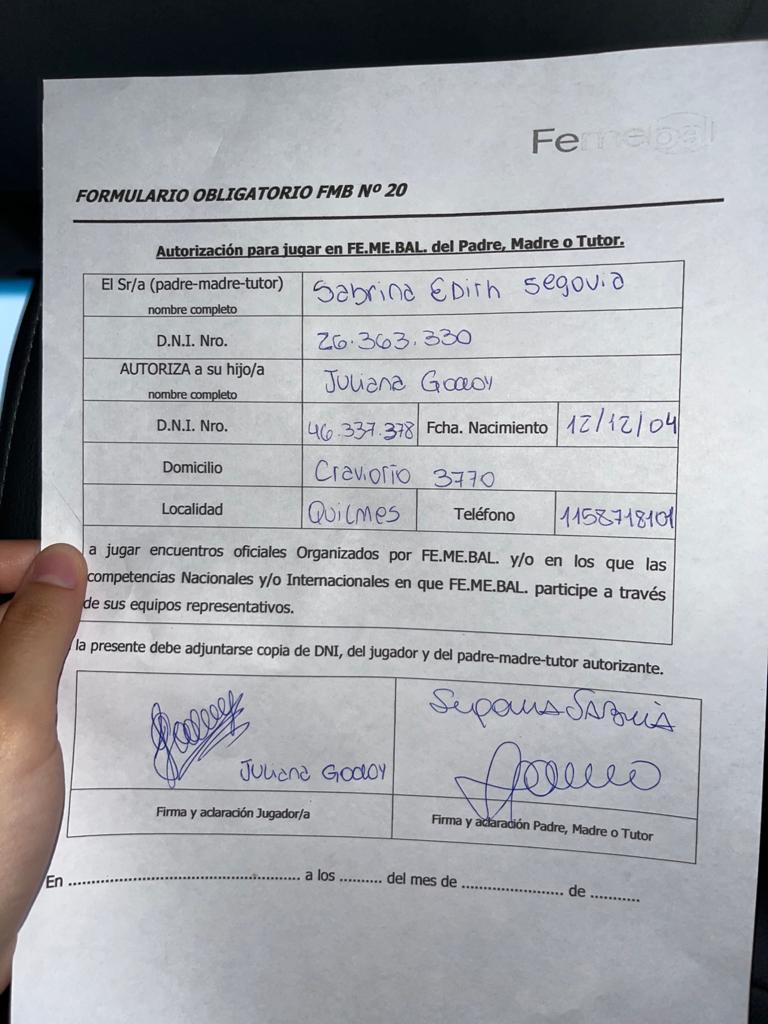 Femebal
FORMULARIO OBLIGATORIO FMB Nº 20
Autorización para jugar en FE.ME.BAL. del Padre, Madre o Tutor.
El Sr/a (padre-madre-tutor) Sabrina Edith Segovia
nombre completo
D.N.I. Nro. 26.363.330
AUTORIZA a su hijo/a Juliana Godoy
nombre completo
D.N.I. Nro. 46.337.378 Fcha. Nacimiento 12/12/04
Domicilio Craviotto 3770
Localidad Quilmes Teléfono 1158718101
a jugar encuentros oficiales Organizados por FE.ME.BAL. y/o en los que las
competencias Nacionales y/o Internacionales en que FE.ME.BAL. participe a través
de sus equipos representativos.
la presente debe adjuntarse copia de DNI, del jugador y del padre-madre-tutor autorizante.
Juliana Godoy
Firma y aclaración Jugador/a
Segovia Sabrina
Firma y aclaración Padre, Madre o Tutor
En .................................................. a los ......... del mes de ...................... de ...........